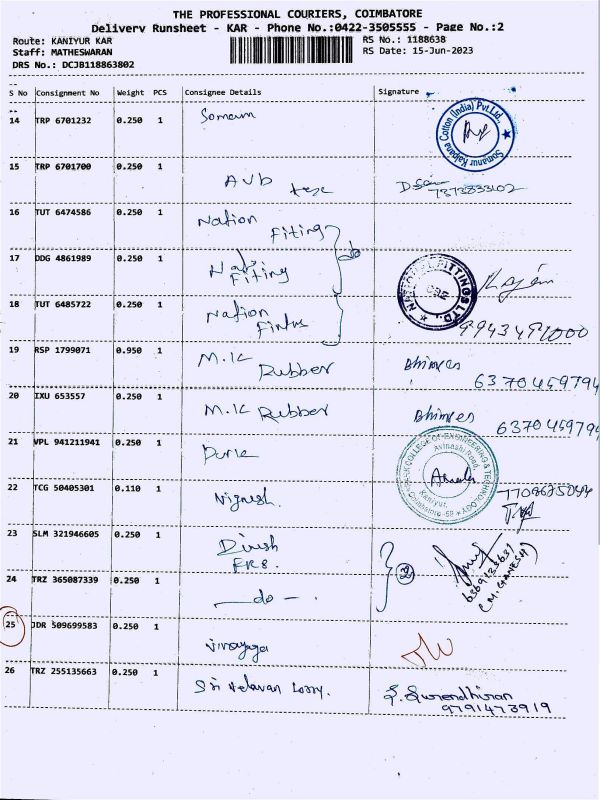 THE PROFESSIONAL COURIERS, COIMBATORE
Delivery Runsheet - KAR - Phone No.:0422-3505555 - Page No.:2
Route: KANIYUR KAR
RS No.: 1188638
Staff: MATHESWARAN
RS Date: 15-Jun-2023
DRS No.: DCJB118863802
S No Consignment No Weight PCS Consignee Details Signature
14 TRP 6701232 0.250 1
Somanur Kalpana Cotton (India) Pvt.Ltd.,
15 TRP 6701700 0.250 1 AVb
7373833102
16 TUT 6474586 0.250 1 Nation Fiting
do
17 DDG 4861989 0.250 1 Nati Fiting
NATIONAL FITTINGS LTD.
18 TUT 6485722 0.250 1 Nation
19 RSP 1799071 0.950 1 M.K Rubber
6370459794
20 IXU 653557 0.250 1 M.K Rubber
6370459794
21 VPL 941211941 0.250 1
COLLEGE OF ENGINEERING & TECHNOLOGY
Avinashi Road,
Kaniyur,
22 TCG 50405301 0.110 1 Vignesh.
23 SLM 321946605 0.250 1 Dinesh
24 TRZ 365087339 0.250 1 — do — .
(M. GANESH)
25 JDR 509699583 0.250 1 Vinayaga
26 TRZ 255135663 0.250 1 Sri Velavan Lorry.
S. Surendhiran
9791473919